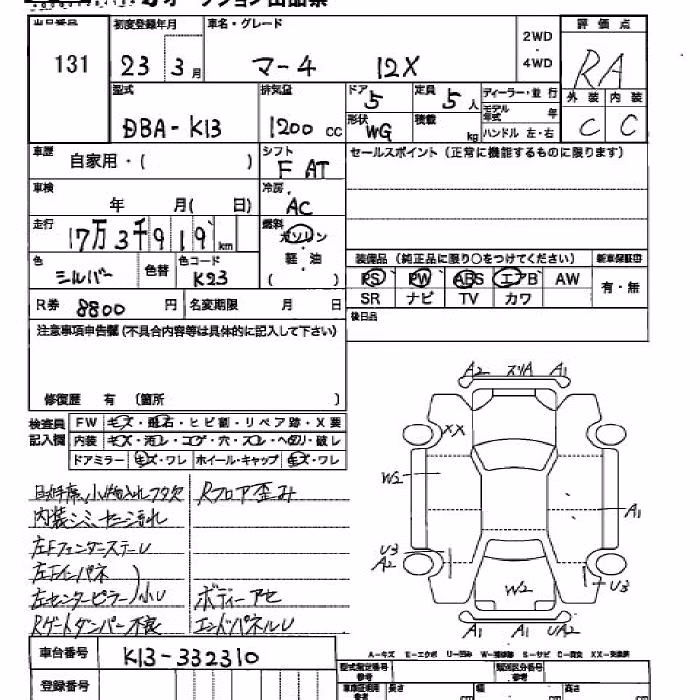 出品番号 初度登録年月 車名・グレード 2WD・4WD 評価点
131 23 3月 マー4 12X RA
型式 排気量 ドア 定員 ディーラー・並行 外装 内装
DBA-K13 1200cc 5 5人 モデル年式 年 C C
形状 積載 ハンドル 左・右
WG kg
車歴 シフト セールスポイント(正常に機能するものに限ります)
自家用・( ) F AT
車検 冷房
年 月( 日) AC
走行 燃料
17万3千919km ガソリン
軽・油
( )
色 色替 色コード 装備品(純正品に限り○をつけてください) 新車保証書
シルバー K23 PS PW ABS エアB AW 有・無
SR ナビ TV カワ
R券 8800円 名変期限 月 日 後日品
注意事項申告欄(不具合内容等は具体的に記入して下さい)
修復歴 有(箇所 )
検査員記入欄 FW キズ・飛石・ヒビ割・リペア跡・X要
内装 キズ・汚レ・コゲ・穴・スレ・ヘタリ・破レ
ドアミラー キズ・ワレ ホイール・キャップ キズ・ワレ
A2 ズリA A1
XX
W2
A1
U3
A2
U3
W2
A1 A1 UA2
Rフロア歪み
内装シミ、
左FフェンダーステーU
左Fインパネ
左センターピラー)小U ボディーアセ
Rゲートダンパー不良 エンドパネルU
A-キズ E-エクボ U-凹み W-補修跡 S-サビ C-腐食 XX-交換済
車台番号 K13-332310 型式指定番号 類別区分番号
参考 参考
登録番号 長さ 幅 高さ